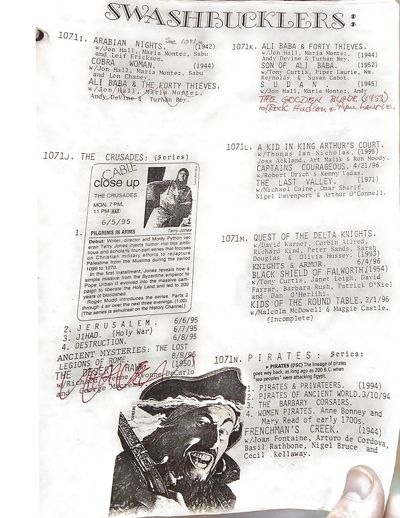 SWASHBUCKLERS:
1071I. ARABIAN NIGHTS. (1942)
w/Jon Hall, Maria Montez, Sabu
and Leif Erickson.
COBRA WOMAN. (1944)
w/Jon Hall, Maria Montez, Sabu
and Lon Chaney.
ALI BABA & THE FORTY THIEVES.
w/Jon Hall, Maria Montez,
Andy Devine & Turhan Bey.
1071J. THE CRUSADES: (Series)
CABLE
close up
THE CRUSADES
MON. 7 PM,
11 PM
6/5/95
Terry Jones
1. PILGRIMS IN ARMS
Debut: Writer, director and Monty Python veteran Terry Jones injects humor into this ambitious and scholarly four-part series that focuses on Christian military efforts to recapture Palestine from the Muslims during the period 1096 to 1270.
In the first installment, Jones reveals how a simple missive from the Byzantine emperor to Pope Urban II evolved into the massive campaign to liberate the Holy Land and led to 200 years of bloodshed.
Roger Mudd introduces the series. Parts 2 through 4 air over the next three evenings. (1:00)
(The series is simulcast on the History Channel)
2. JERUSALEM. 6/6/95
3. JIHAD. (Holy War) 6/7/95
4. DESTRUCTION. 6/8/95
ANCIENT MYSTERIES: THE LOST
LEGIONS OF ROME. 8/8/96
THE DESERT HAWK. (1950)
1071K. ALI BABA & FORTY THIEVES.
w/Jon Hall, Maria Montez, (1944)
Andy Devine & Turhan Bey.
SON OF ALI BABA. (1952)
w/Tony Curtis, Piper Laurie, Wm.
Reynolds & Susan Cabot.
SUDAN. (1945)
w/Jon Hall, Maria Montez, Andy
THE GOLDEN BLADE (1953)
w/Rock Hudson & Piper Laurie.
1071L. A KID IN KING ARTHUR'S COURT.
w/Thomas Ian Nicholas, (1995)
Joss Ackland, Art Malik & Ron Moody.
CAPTAINS COURAGEOUS. 4/21/96
w/Robert Urich & Kenny Vadas.
THE LAST VALLEY. (1971)
w/Michael Caine, Omar Sharif,
Nigel Davenport & Arthur O'Connell.
1071M. QUEST OF THE DELTA KNIGHTS.
w/David Warner, Corbin Allred,
Richard Kind, Peter Sands, Sarah
Douglas & Olivia Hussey. (1993)
KNIGHTS & ARMOR. 6/4/96
BLACK SHIELD OF FALWORTH(1954)
w/Tony Curtis, Janet Leigh, David
Farrar, Barbara Rush, Patrick O'Niel
and Dan O'Herlihi
KIDS OF THE ROUND TABLE. 2/1/96
w/Malcolm McDowell & Maggie Castle.
(Incomplete)
1071N. PIRATES: Series:
► PIRATES (DSC) The lineage of pirates
goes way back, as long ago as 200 B.C. when
"sea peoples" were attacking Egypt.
1. PIRATES & PRIVATEERS. (1994)
2. PIRATES OF ANCIENT WORLD.3/10/94
3. THE BARBARY CORSAIRS.
4. WOMEN PIRATES. Anne Bonney and
Mary Read of early 1700s.
FRENCHMAN'S CREEK. (1944)
w/Joan Fontaine, Arturo de Cordova,
Basil Rathbone, Nigel Bruce and
Cecil Kellaway.